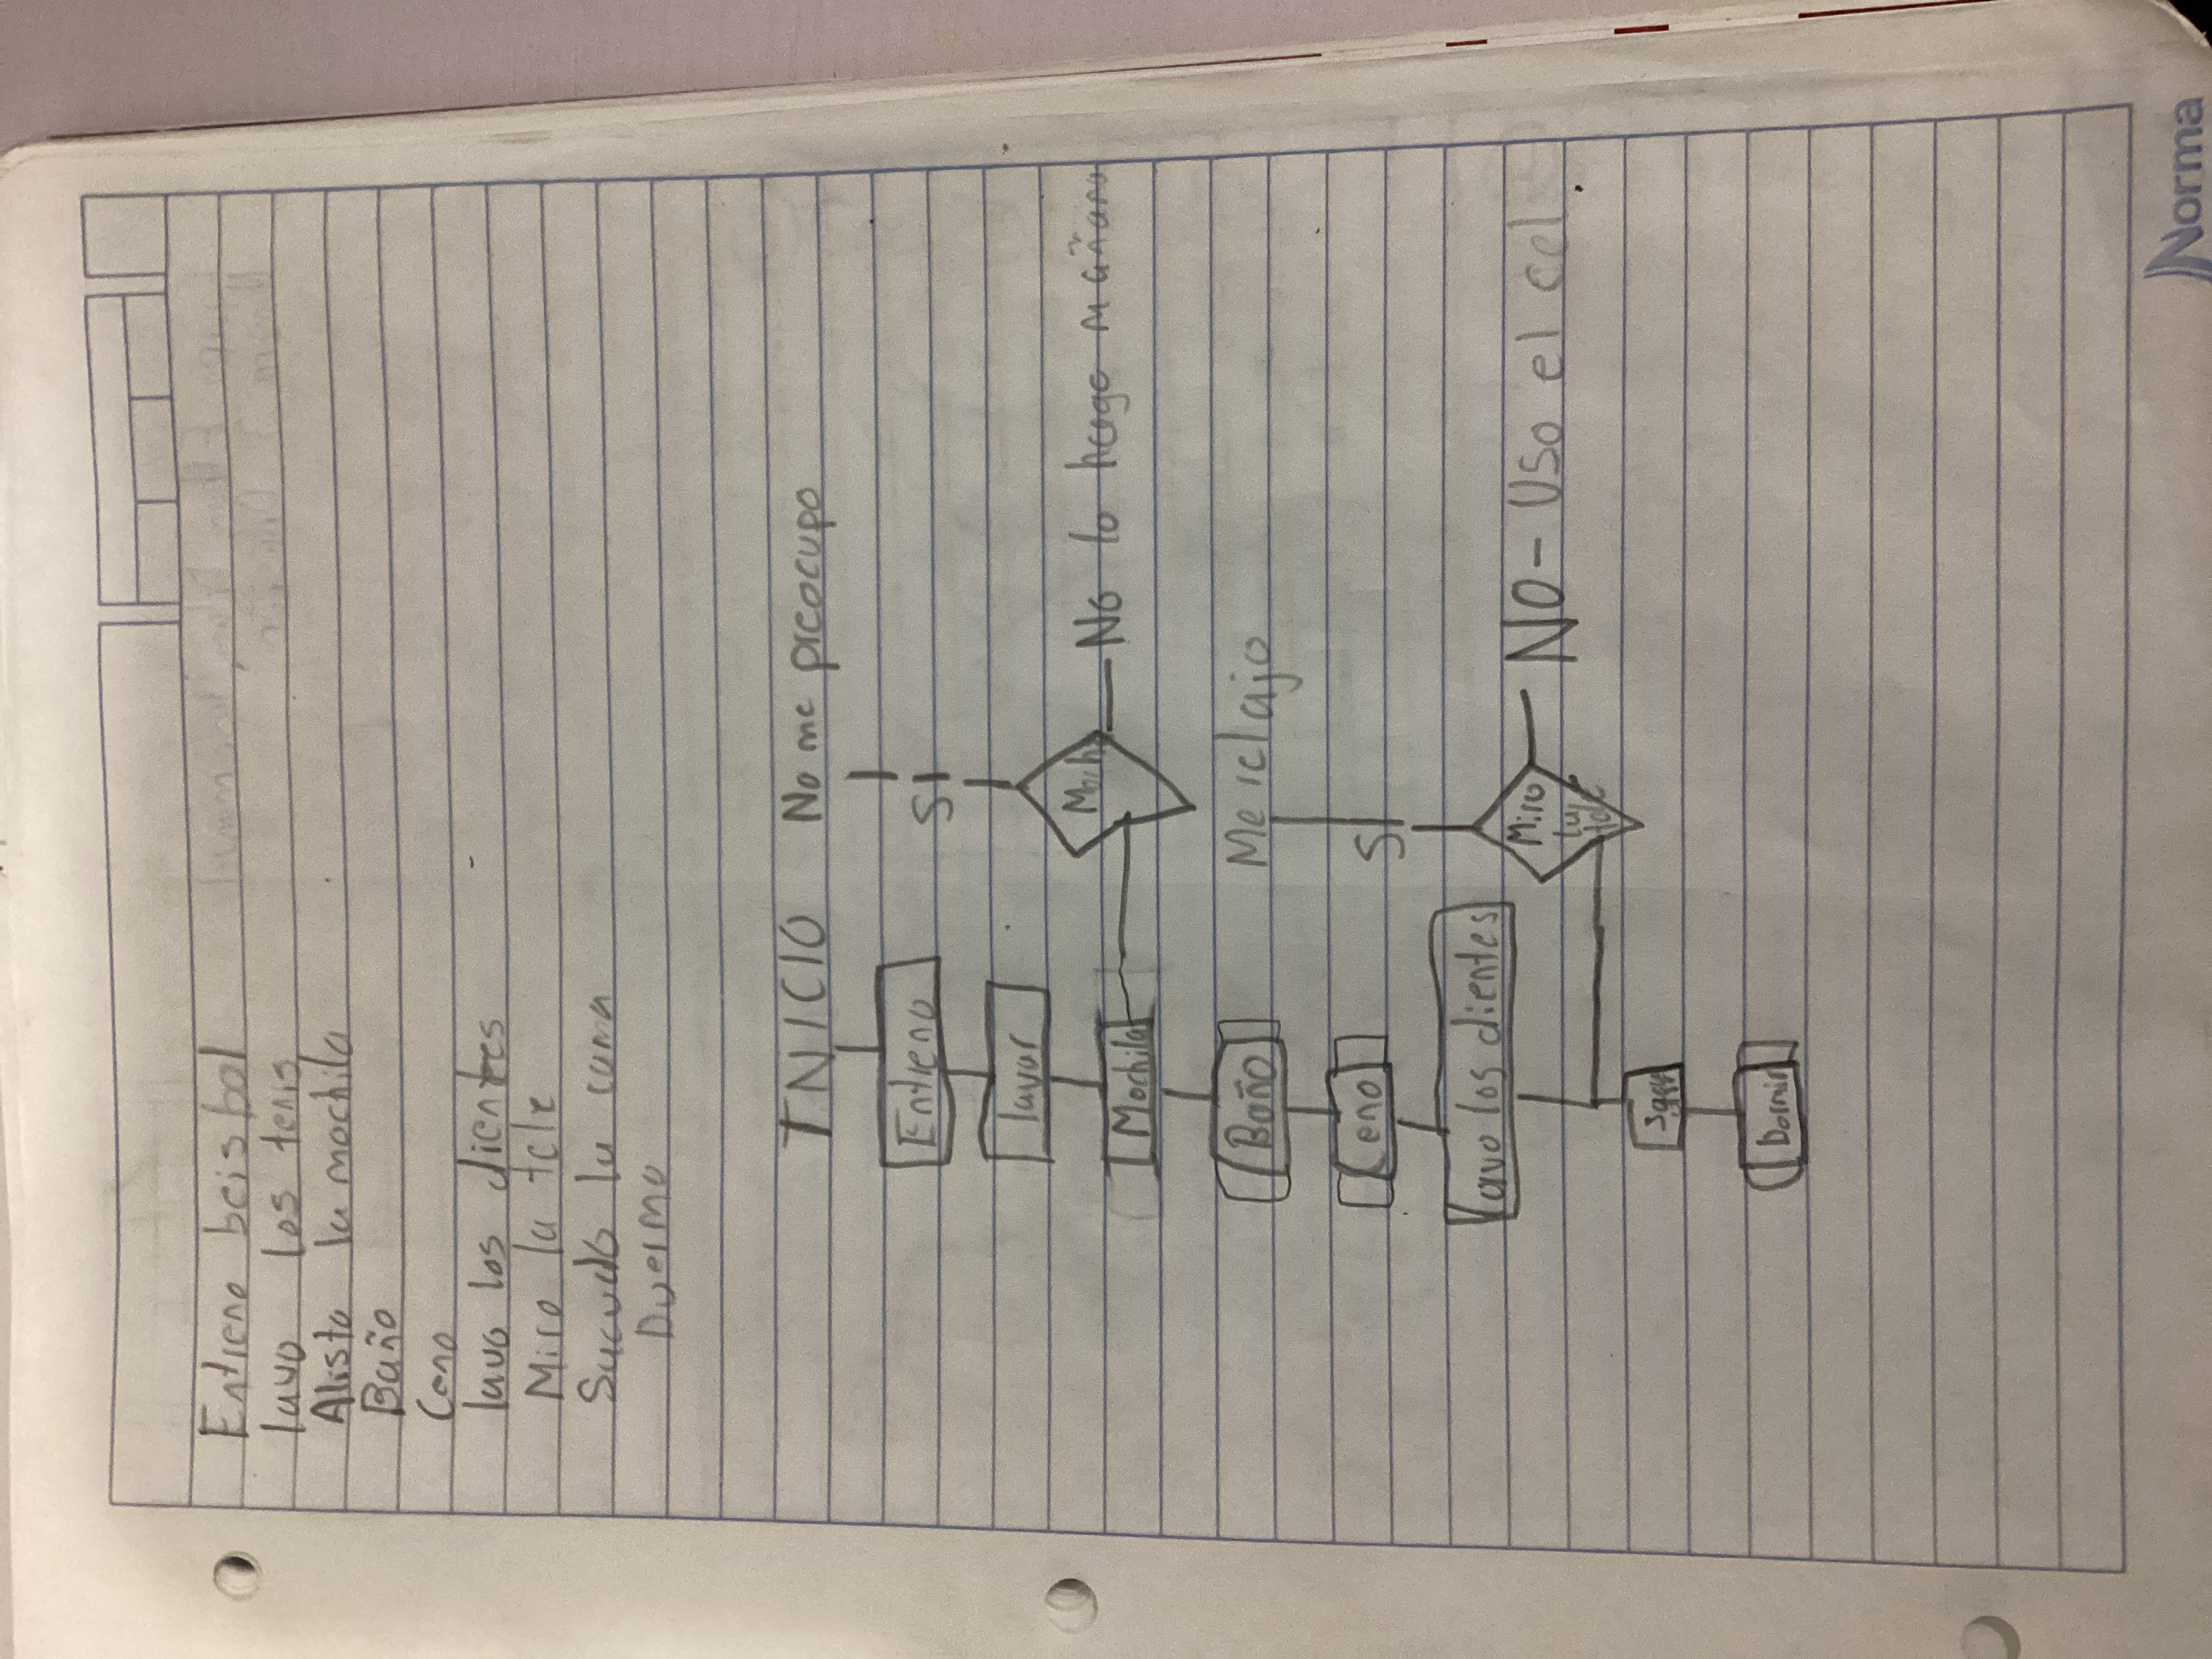 Entreno beisbol
lavo los tenis
Alisto la mochila
Baño
Ceno
lavo los dientes
Miro la tele
Sacudo la cama
Duermo
INICIO No me preocupo
Entreno
SI
lavar
Mochila
No lo hago mañana
Baño
Me relajo
Ceno
SI
lavo los dientes
Miro
la
tele
NO - Uso el cel
Dormir
Norma